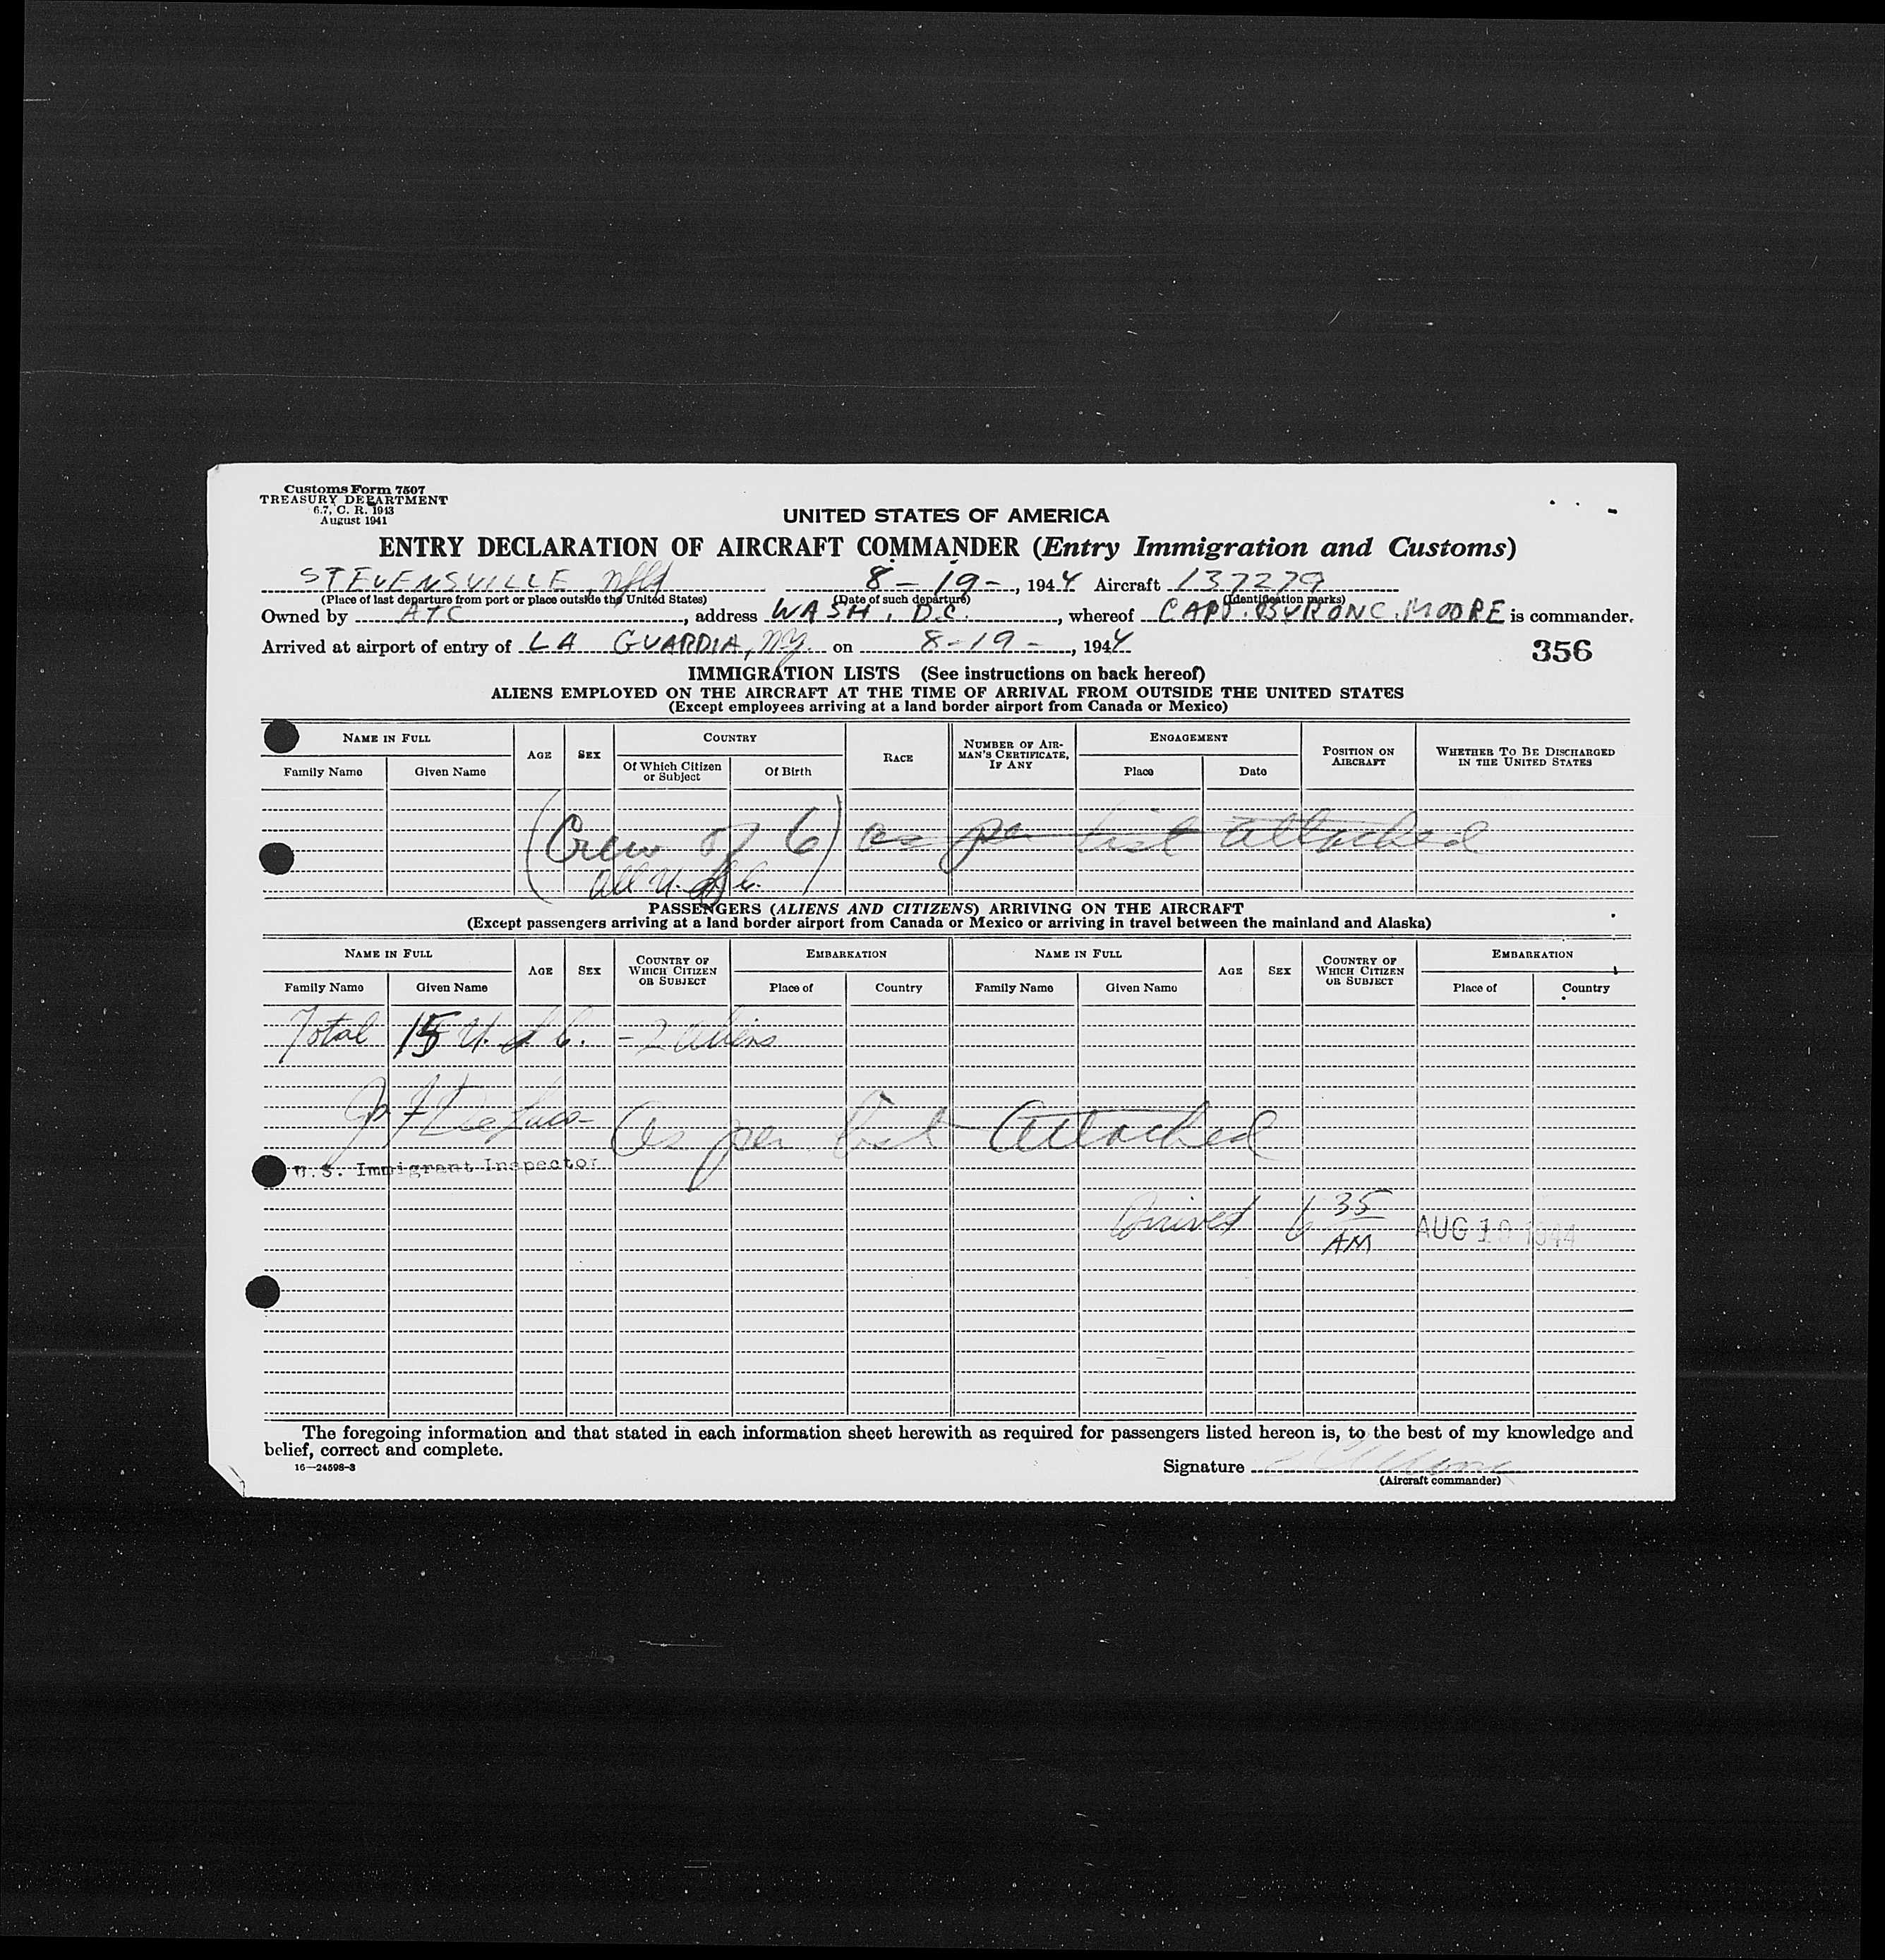 Customs Form 7507
TREASURY DEPARTMENT
6.7, C. R. 1943
August 1941
UNITED STATES OF AMERICA
ENTRY DECLARATION OF AIRCRAFT COMMANDER (Entry Immigration and Customs)
STEVENSVILLE, Nfld 8-19-, 1944 Aircraft 137279
(Place of last departure from port or place outside the United States) (Date of such departure) (Identification marks)
Owned by ATC, address WASH. D.C., whereof CAPT. BYRON C. MOORE is commander.
Arrived at airport of entry of LA GUARDIA, NY on 8-19-, 1944
356
IMMIGRATION LISTS (See instructions on back hereof)
ALIENS EMPLOYED ON THE AIRCRAFT AT THE TIME OF ARRIVAL FROM OUTSIDE THE UNITED STATES
(Except employees arriving at a land border airport from Canada or Mexico)
NAME IN FULL AGE SEX COUNTRY RACE NUMBER OF AIRMAN'S CERTIFICATE, IF ANY ENGAGEMENT POSITION ON AIRCRAFT WHETHER TO BE DISCHARGED IN THE UNITED STATES
Family Name Given Name Of Which Citizen or Subject Of Birth Place Date
(Crew of 6) as per list attached
All U.S.C.
PASSENGERS (ALIENS AND CITIZENS) ARRIVING ON THE AIRCRAFT
(Except passengers arriving at a land border airport from Canada or Mexico or arriving in travel between the mainland and Alaska)
NAME IN FULL AGE SEX COUNTRY OF WHICH CITIZEN OR SUBJECT EMBARKATION NAME IN FULL AGE SEX COUNTRY OF WHICH CITIZEN OR SUBJECT EMBARKATION
Family Name Given Name Place of Country Family Name Given Name Place of Country
Total 15 U.S.C. - 2 Aliens
As per list Attached
U.S. Immigrant Inspector
Arrived 6 35 AM AUG 19 1944
The foregoing information and that stated in each information sheet herewith as required for passengers listed hereon is, to the best of my knowledge and
belief, correct and complete.
16—24598-3
Signature
(Aircraft commander)